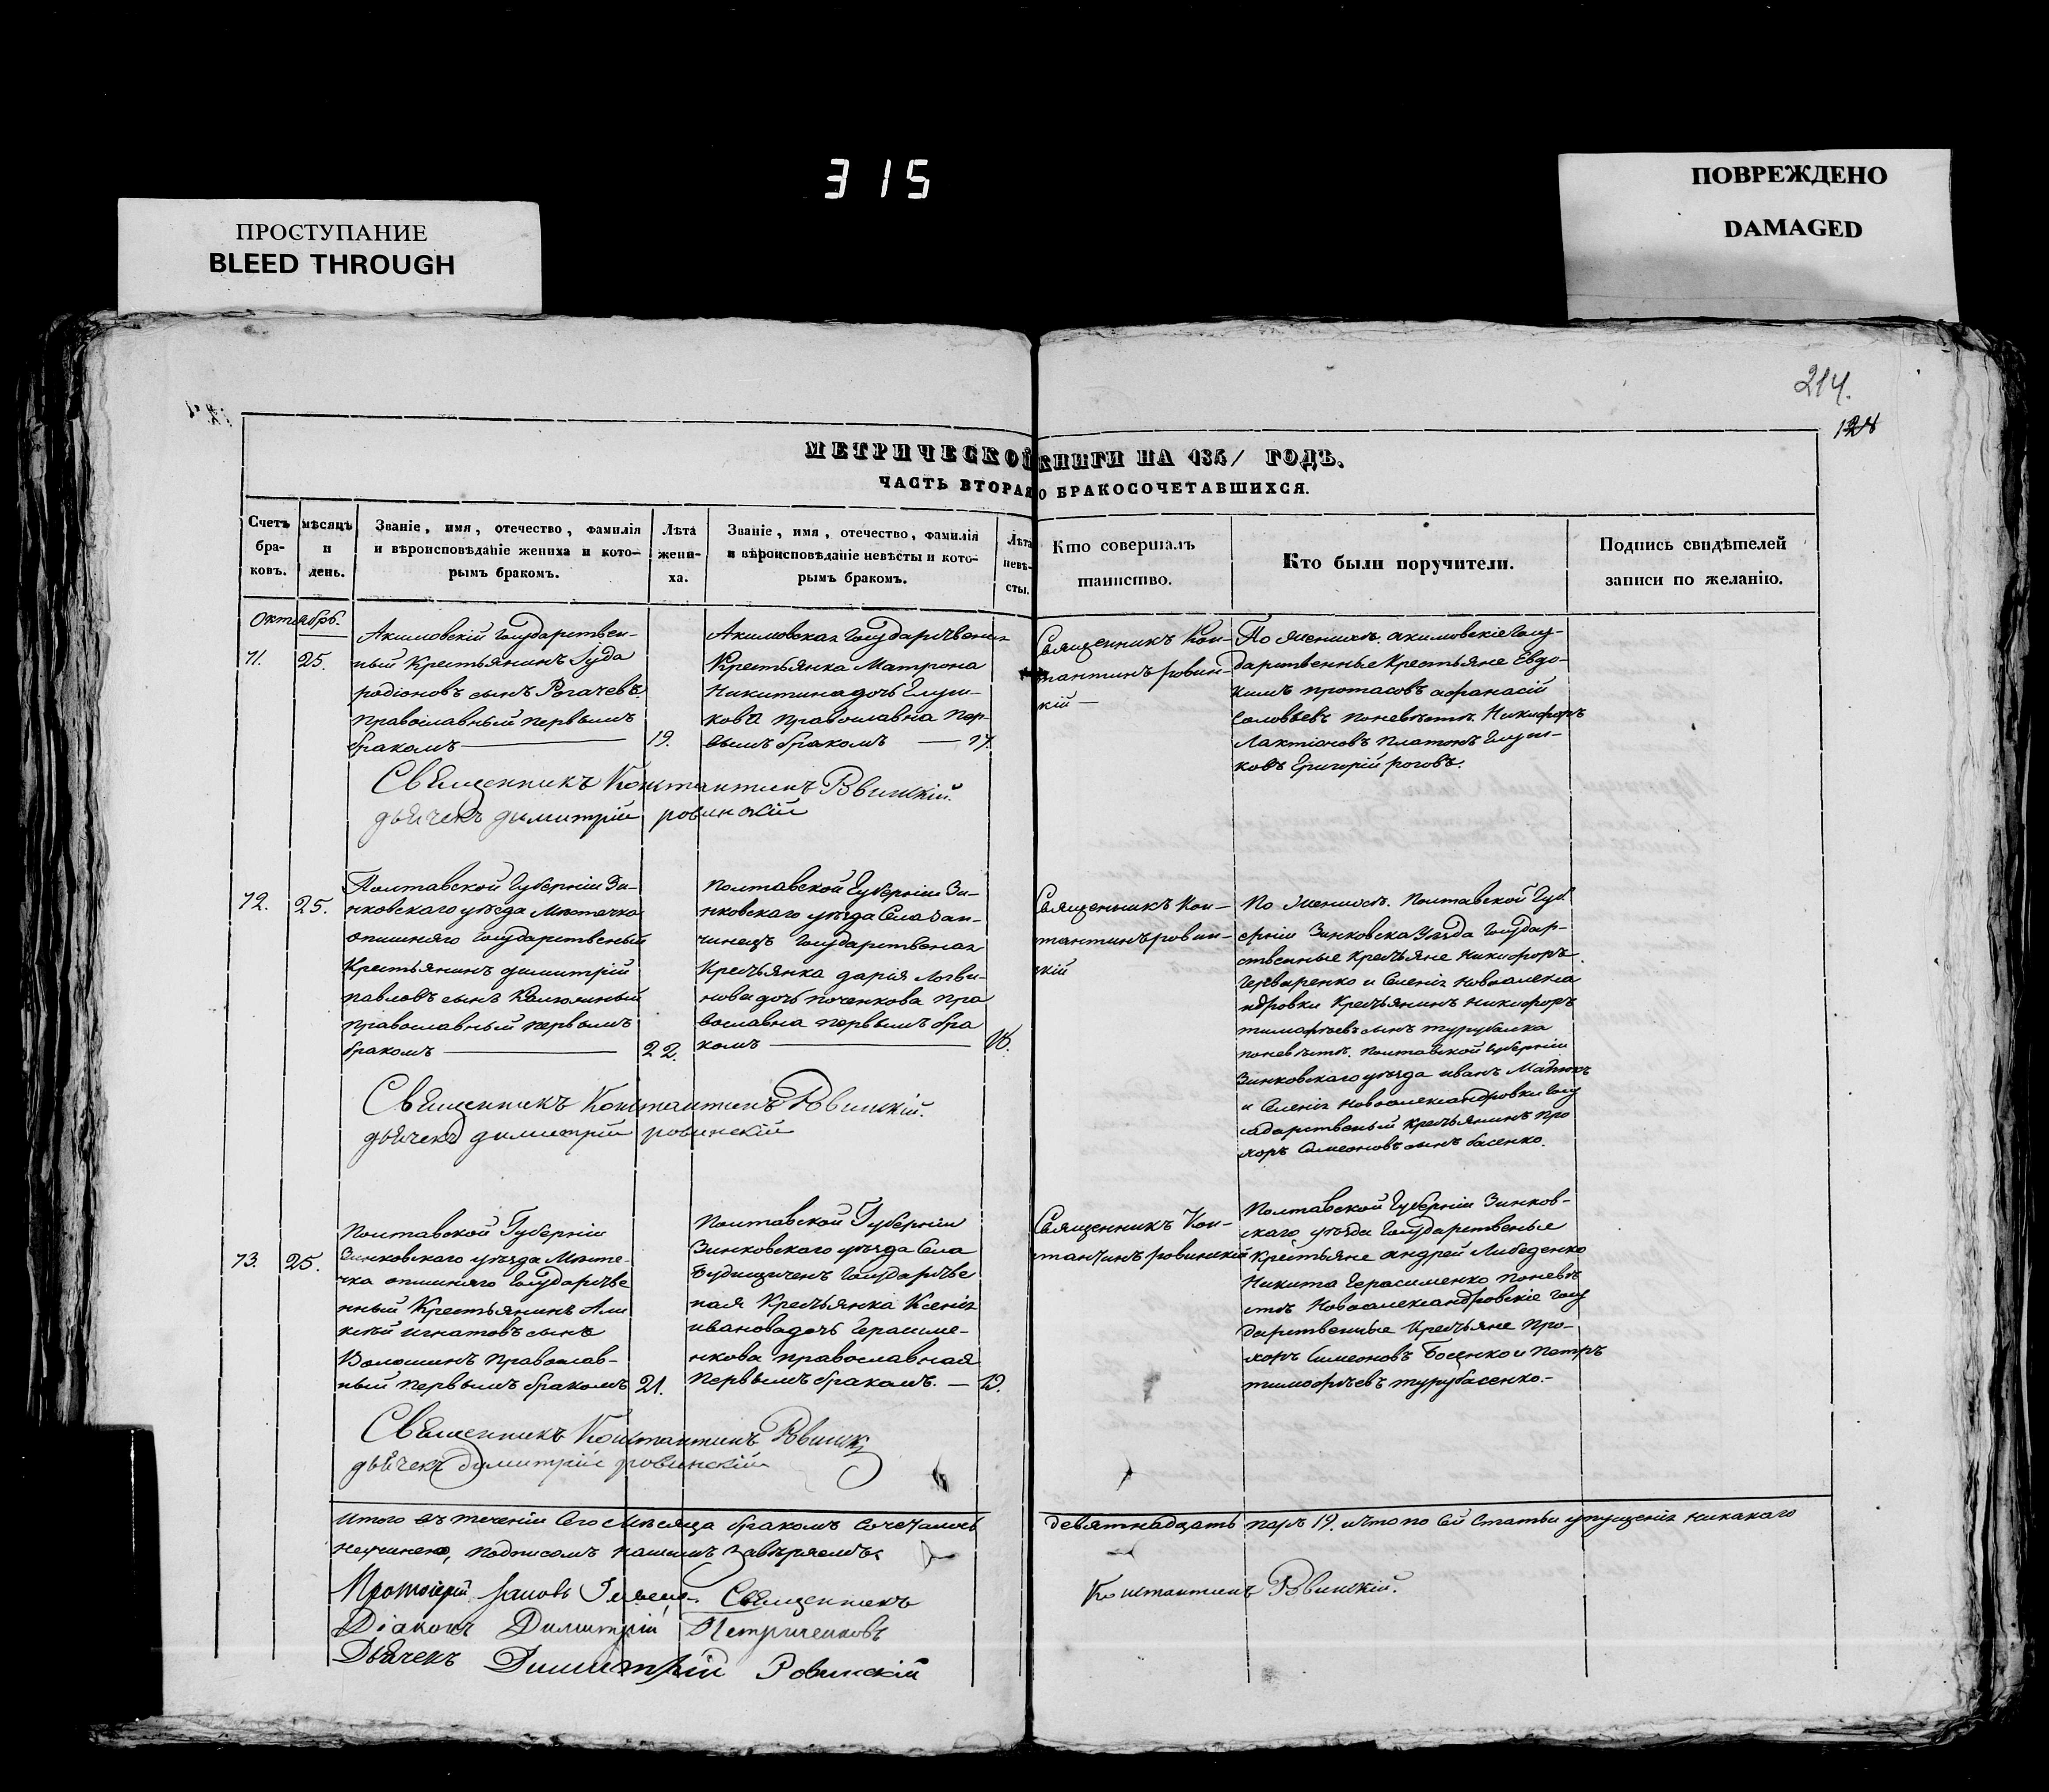 315
ПРОСТУПАНИЕ
BLEED THROUGH
ПОВРЕЖДЕНО
DAMAGED
214.
128
МЕТРИЧЕСКОЙ КНИГИ НА 1851 ГОДЪ.
ЧАСТЬ ВТОРАЯ О БРАКОСОЧЕТАВШИХСЯ.
Счетъ бра-ковъ.
мѣсяцъ и день.
Званіе, имя, отечество, фамилія
и вѣроисповѣданіе жениха и кото-
рымъ бракомъ.
Лѣта жени-ха.
Званіе, имя, отечество, фамилія
и вѣроисповѣданіе невѣсты и кото-
рымъ бракомъ.
Лѣта невѣ-сты.
Кто совершалъ
таинство.
Кто были поручители.
Подпись свидѣтелей
записи по желанію.
Октябрь.
71.
25.
Акимовскій государствен-
ный Крестьянинъ Іуда
родіоновъ сынъ Рогачевъ
православный первымъ
бракомъ
19.
Акимовская государственая
Крестьянка Матрона
Никитина дочь Глуш-
кова православна пер-
вымъ бракомъ
17.
Священникъ Кон-
стантинъ ровин-
скій
По женихѣ. акимовскіе госу-
дарственые Крестьяне Евдо-
кимъ протасовъ афанасій
Соловьевъ поневѣстѣ. Никифоръ
Лактіоновъ Платонъ Глуш-
ковъ Григорій роговъ.
Священникъ Константинъ Ровинскій.
дьячекъ димитрій ровинскій
72.
25.
Полтавской Губерніи Зи-
нковскаго уѣзда Мѣстечка
опишняго государственый
Крестьянинъ димитрій
павловъ сынъ
православный первымъ
бракомъ
22.
Полтавской Губерніи Зи-
нковскаго уѣзда Села
государственая
Крестьянка дарія Логви-
нова дочь поченкова пра
вославна первымъ бра
комъ
18.
Священникъ Кон-
стантинъ ровин-
скій
По женихѣ. Полтавской Губ
ерніи Зинковска Уѣзда государ-
ственные Крестьяне Никифоръ
и Селенія Новоалекса
ндровки Крестьянинъ Никифоръ
тимофѣевъ сынъ
поневѣстѣ. Полтавской губерніи
Зинковскаго уѣзда иванъ
и Селенія Новоалександровки госу
дарственый Крестьянинъ Про
хоръ Симеоновъ сынъ басенко.
Священникъ Константинъ Ровинскій.
дьячекъ димитрій ровинскій
73.
25.
Полтавской Губерніи
Зинковскаго уѣзда Мѣсте-
чка опишняго государстве
нный Крестьянинъ Але
ксѣй игнатовъ сынъ
Волошинъ православ-
ный первымъ бракомъ
21.
Полтавской Губерніи
Зинковскаго уѣзда Села
государстве
ная Крестьянка Ксенія
иванова дочь Герасиме-
нкова православная
первымъ бракомъ.
19.
Священникъ Кон-
стантинъ ровинскій
Полтавской Губерніи Зинков-
скаго уѣзда государственые
Крестьяне андрей Лебеденко
Никита Герасименко поневѣ
стѣ Новоалександровскіе госу
дарственые Крестьяне Про-
хоръ Симеоновъ Босенко и Петръ
тимофѣевъ
Священникъ Константинъ
дьячекъ димитрій ровинскій
Итого въ теченіи Сего Мѣсяца бракомъ Сочеталось девятнадцать паръ 19. и что по Сей Статьи упущенія никакого
неучинено, подписомъ нашимъ завѣряемъ
Протоіерей Іаковъ
Священникъ Константинъ Ровинскій.
Діаконъ Димитрій Петриченковъ
Дьячекъ Димитрій Ровинскій